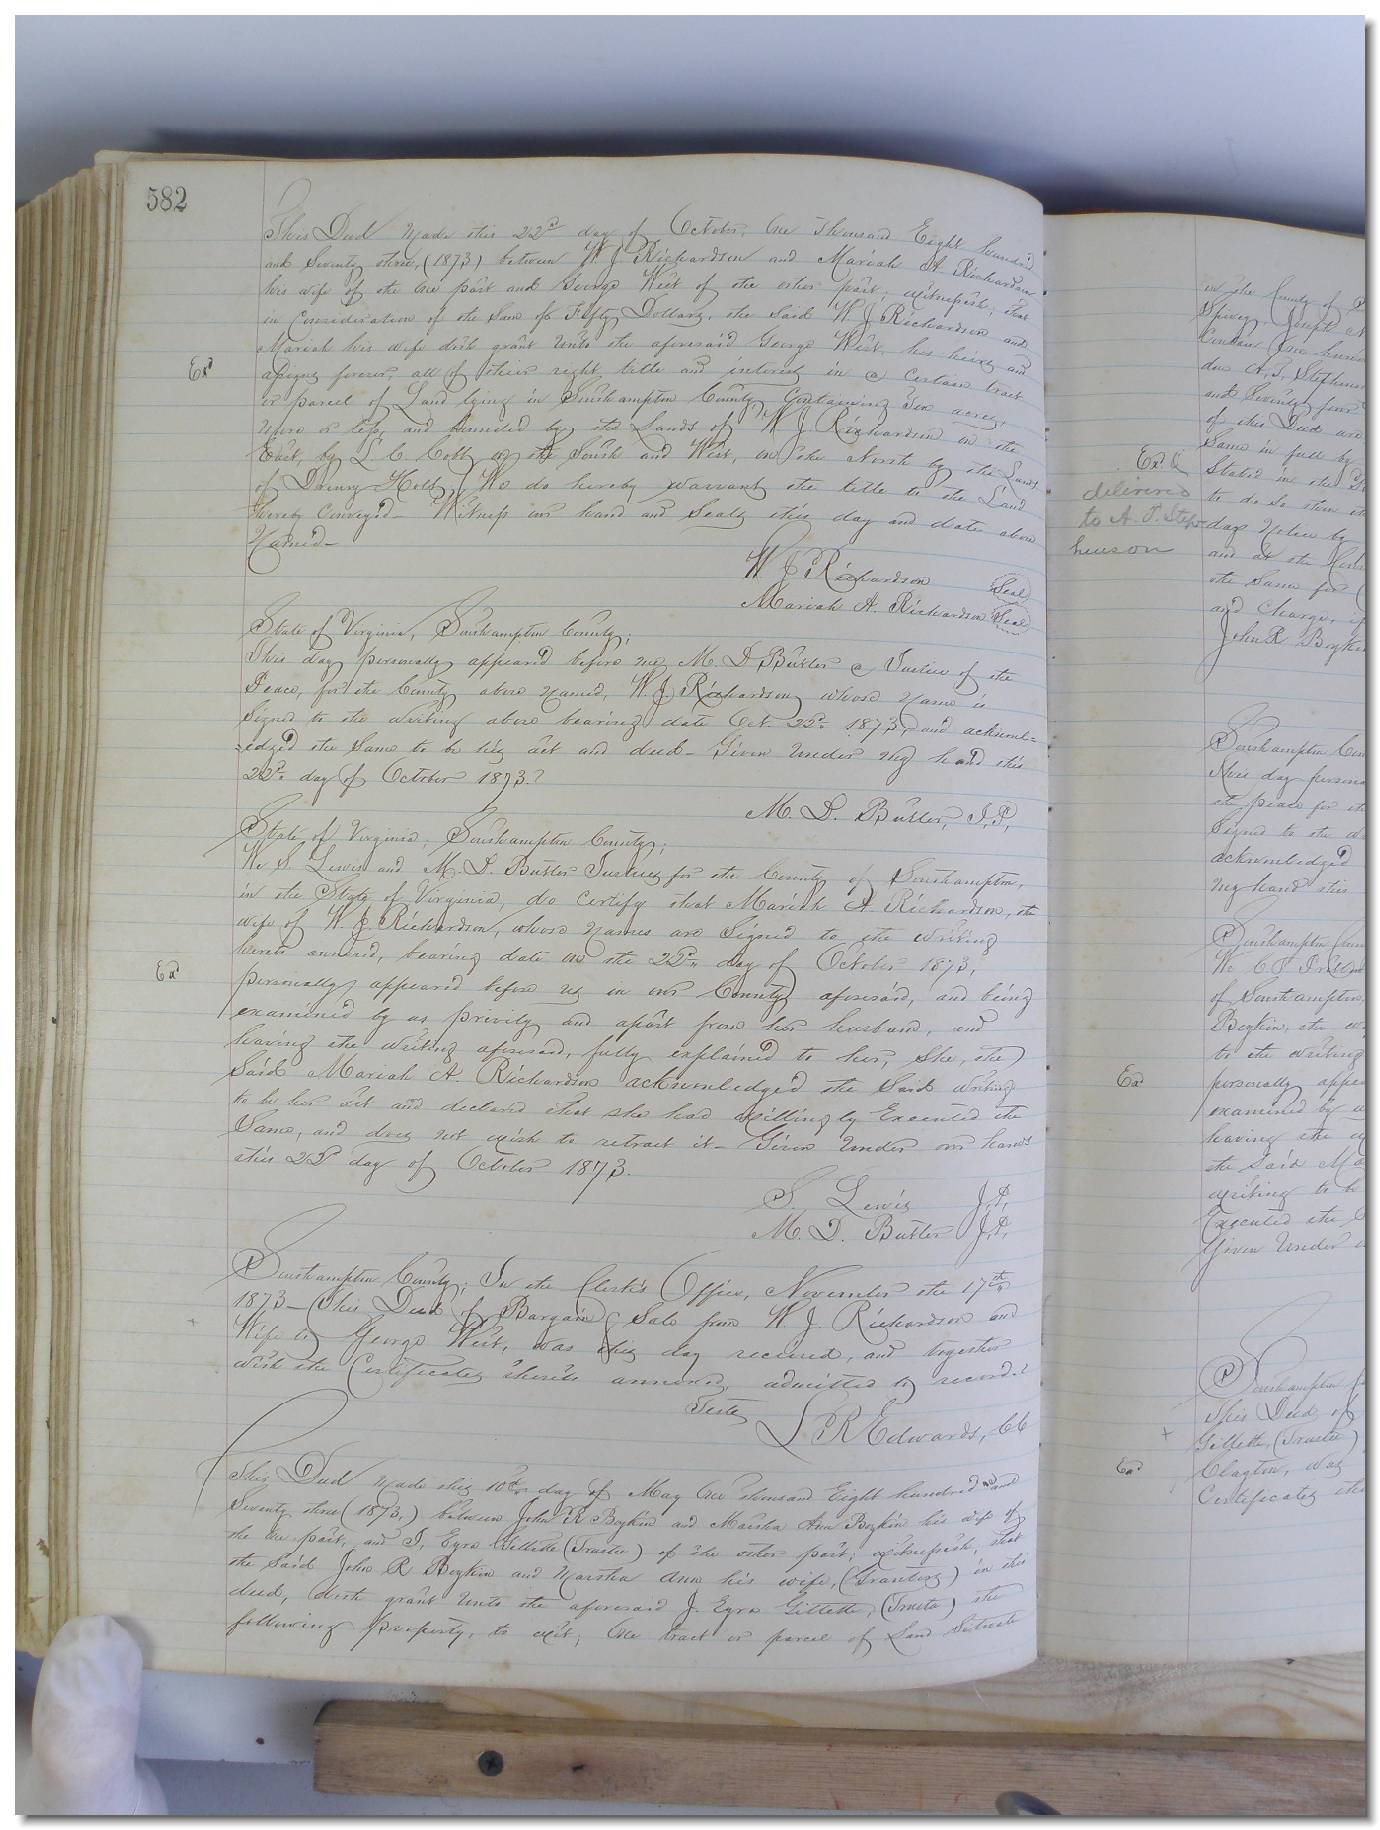 582
This Deed made this 22d day of October, One Thousand Eight hundred
and Seventy three, (1873) between W J Richardson and Mariah A Richardson
his wife of the One part and George West of the other part; witnesseth; that
in Consideration of the Sum of Fifty Dollars, the said W J Richardson and
Mariah his wife doth grant unto the aforesaid George West, his heirs and
Ex.d
assigns forever, all of their right title and interest in a Certain tract
or parcel of Land lying in Southampton County Containing Ten acres,
more or less, and bounded by the Lands of W. J. Richardson on the
East, by L. C. Cobb on the South and West, on the North by the Lands
of Drewry Holt, We do hereby warrant the title to the Land
hereby Conveyed Witness our hand and Seals this day and date above
Named—
W J Richardson Seal
Mariah A. Richardson Seal
State of Virginia, Southampton County;
This day personally appeared before me, M. D Butler a Justice of the
Peace, for the County above named, W. J. Richardson, whose name is
Signed to the writing above bearing date Oct. 22d 1873, and acknowl=
=edged the Same to be his act and deed— Given under my hand this
22d day of October 1873.
M. D. Butler, J.P,
State of Virginia, Southampton County;
We S. Lewis and M. D. Butler Justices for the County of Southampton,
in the State of Virginia, do Certify that Mariah A. Richardson, the
wife of W. J. Richardson, whose names are Signed to the writing
hereto annexed, bearing date on the 22d day of October 1873,
Ex.d
personally appeared before us in our County aforesaid, and being
examined by us privily and apart from her husband, and
having the writing aforesaid, fully explained to her, She, the
Said Mariah A. Richardson acknowledged the Said writing
to be her act and declared that She had willingly Executed the
Same, and does not wish to retract it— Given under our hands
this 22d day of October 1873.
S. Lewis J.P.
M. D. Butler J.P.
Southampton County; In the Clerk's Office, November the 17th
1873— This Deed of Bargain & Sale from W. J. Richardson and
Wife to George West, was this day received, and together
with the Certificates thereto annexed, admitted to record.
Teste
L R Edwards, CC
This Deed made this 10th day of May One Thousand Eight hundred and
Seventy three (1873,) between John R Boykin and Martha Ann Boykin his wife of
the One part, and J. Eyre Gillette (Trustee) of the other part; witnesseth, that
the Said John R Boykin and Martha Ann his wife, (Grantors) in this
deed, doth grant unto the aforesaid J. Eyre Gillette, (Trustee) the
following property, to wit; One tract or parcel of Land Situate
in the County of
Spivey, Joseph
due A. J. Stephen
and Seventy four
of this Deed and
Same in full by
Ex.d &
Stated in the
delivered
to do So then
to A. J. Step-
days Notice by
henson
and at the
the Same for
and Charge, if
John R Boykin
Southampton Coun
This day persona
the peace for the
Signed to the w
acknowledged
my hand this
Southampton Coun
of Southampton,
Boykin, the w
to the writing
Ex.d
personally appe
examined by u
having the w
the Said Ma
writing to b
Executed the S
Given under o
Southampton
This Deed of
Gillette, (Trustee)
Ex.d
Clayton, was
Certificates the